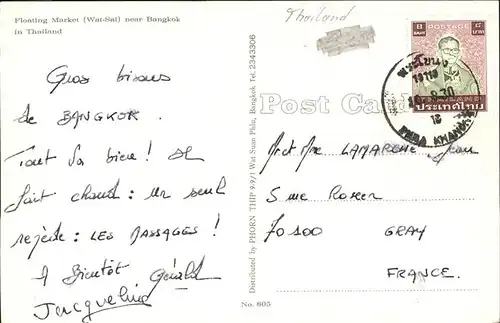 Floating Market (Wat-Sai) near Bangkok
in Thailand
Thailand
Gros bisous
de BANGKOK.
Tout va bien ! Il
fait chaud : un seul
remède : LES MASSAGES !
A Bientôt Gérald
Jacqueline
Distributed by PHORN THIP 9-9/1 Wat Suan Phlu, Bangkok Tel. 2343306
No. 605
Post Card
8 BAHT POSTAGE ๘ บาท
THAILAND
ประเทศไทย
Mr et Mme LAMARCHE Jean
5 rue
70100 GRAY
FRANCE.